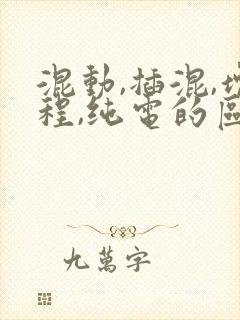 混動,插混,增
程,純電的區
九萬字